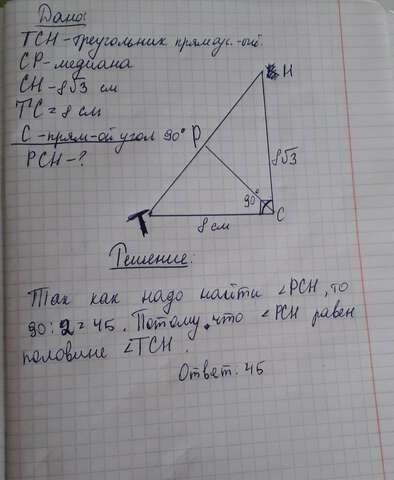 Дано:
ТСН-треугольник прямоуг.-ый.
СР-медиана
СН-8√3 см
ТС=8 см
С-прям-ой угол 90°
РСН-?
Н
Р
8√3
90°
Т
С
8 см
Решение:
Так как надо найти ∠РСН, то
90:2=45. Потому что ∠РСН равен
половине ∠ТСН.
Ответ: 45